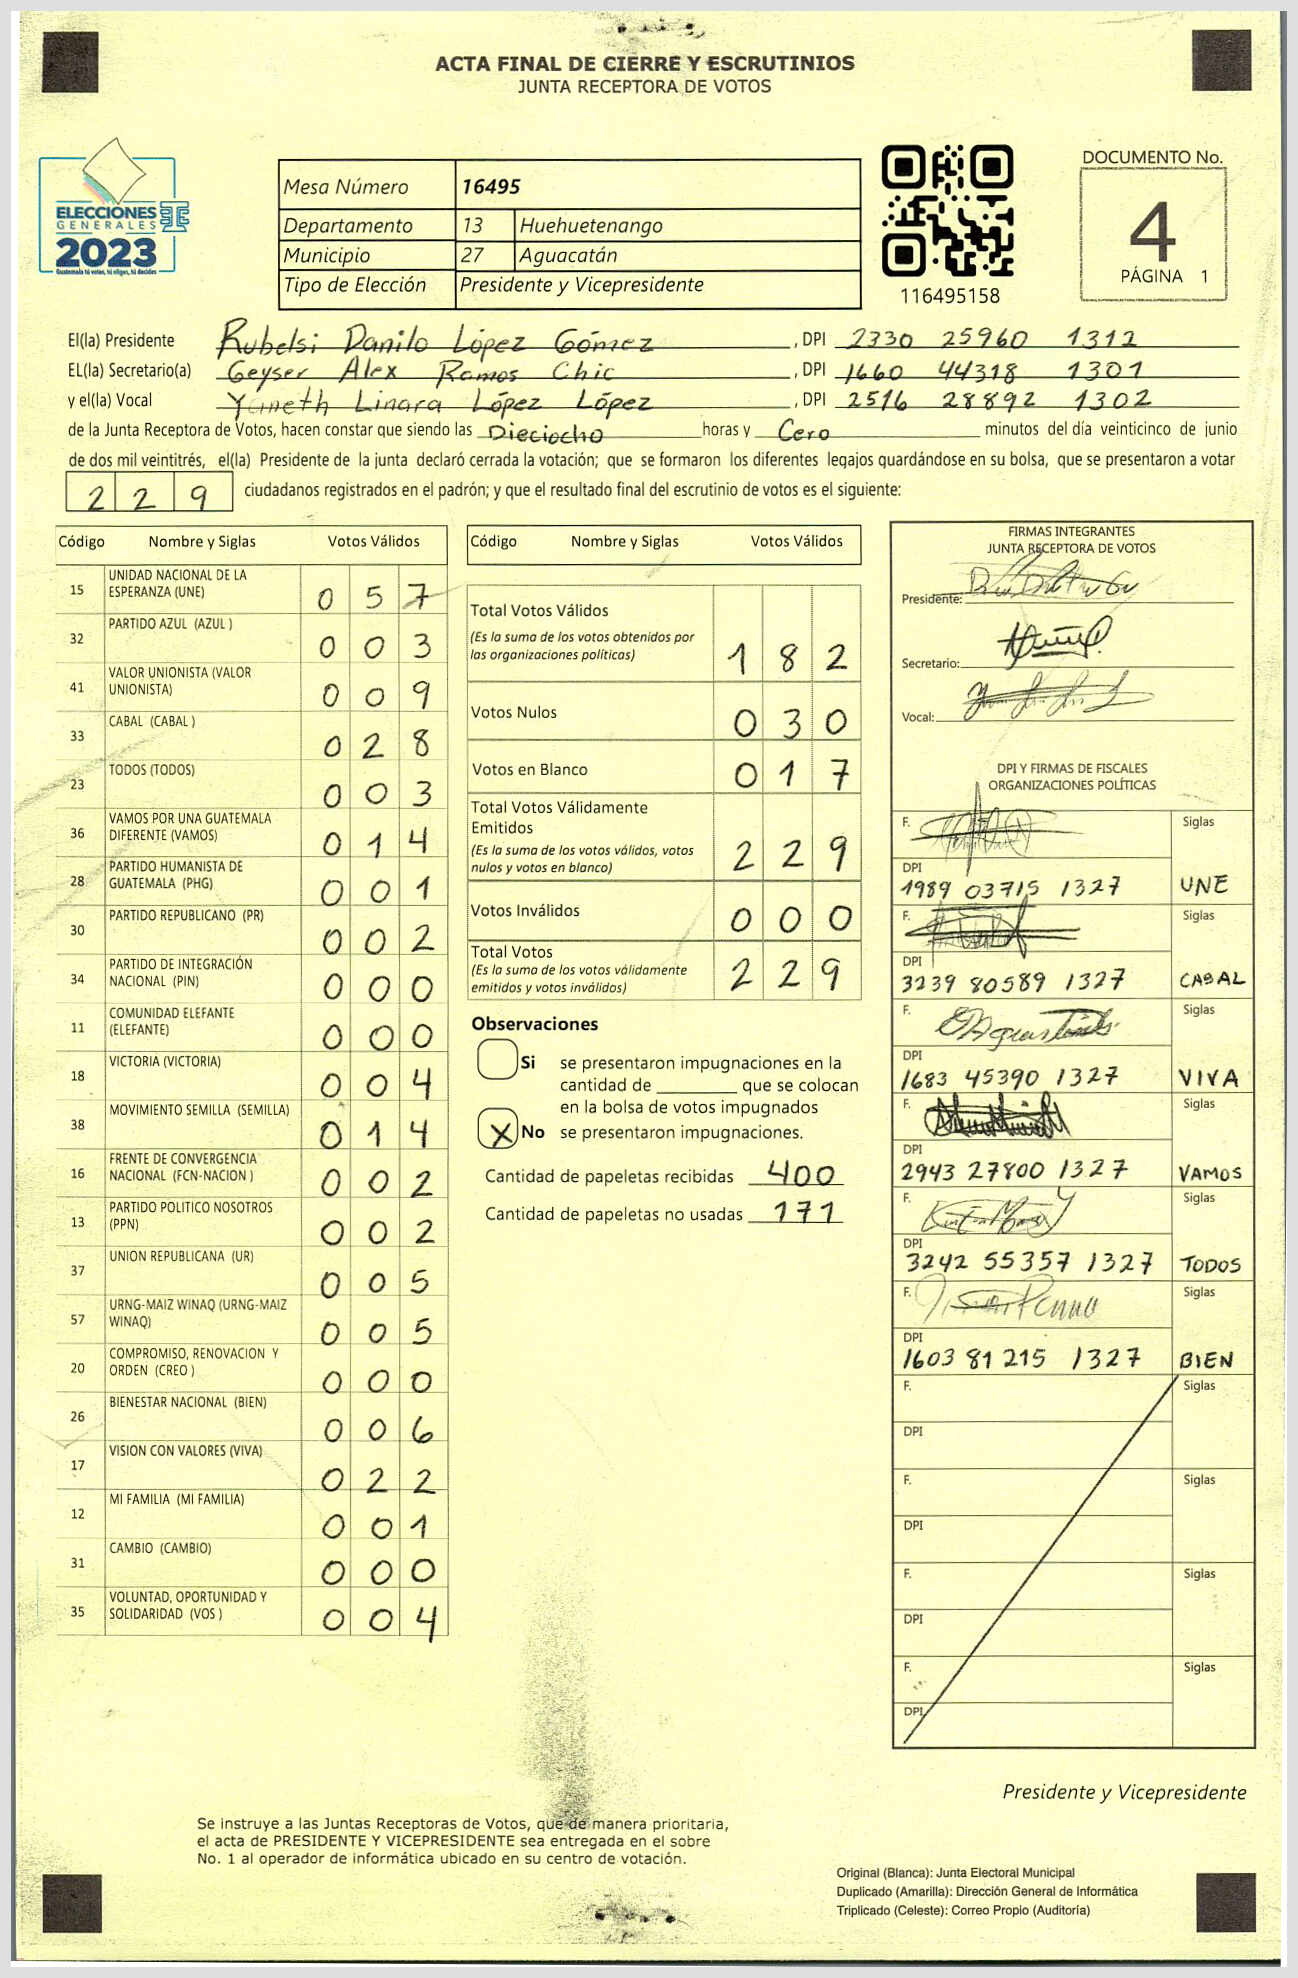 ACTA FINAL DE CIERRE Y ESCRUTINIOS
JUNTA RECEPTORA DE VOTOS
ELECCIONES
GENERALES
2023
Guatemala tú votas, tú eliges, tú decides
Mesa Número 16495
Departamento 13 Huehuetenango
Municipio 27 Aguacatán
Tipo de Elección Presidente y Vicepresidente
116495158
DOCUMENTO No.
4
PÁGINA 1
El(la) Presidente Rubelsi Danilo López Gómez, DPI 2330 25960 1312
EL(la) Secretario(a) Geyser Alex Ramos Chic, DPI 1660 44318 1301
y el(la) Vocal Yaneth Linara López López, DPI 2516 28892 1302
de la Junta Receptora de Votos, hacen constar que siendo las Dieciocho horas y Cero minutos del día veinticinco de junio
de dos mil veintitrés, el(la) Presidente de la junta declaró cerrada la votación; que se formaron los diferentes legajos guardándose en su bolsa, que se presentaron a votar
229 ciudadanos registrados en el padrón; y que el resultado final del escrutinio de votos es el siguiente:
Código Nombre y Siglas Votos Válidos
15 UNIDAD NACIONAL DE LA
ESPERANZA (UNE) 057
32 PARTIDO AZUL (AZUL ) 003
41 VALOR UNIONISTA (VALOR
UNIONISTA) 009
33 CABAL (CABAL ) 028
23 TODOS (TODOS) 003
36 VAMOS POR UNA GUATEMALA
DIFERENTE (VAMOS) 014
28 PARTIDO HUMANISTA DE
GUATEMALA (PHG) 001
30 PARTIDO REPUBLICANO (PR) 002
34 PARTIDO DE INTEGRACIÓN
NACIONAL (PIN) 000
11 COMUNIDAD ELEFANTE
(ELEFANTE) 000
18 VICTORIA (VICTORIA) 004
38 MOVIMIENTO SEMILLA (SEMILLA) 014
16 FRENTE DE CONVERGENCIA
NACIONAL (FCN-NACION ) 002
13 PARTIDO POLITICO NOSOTROS
(PPN) 002
37 UNION REPUBLICANA (UR) 005
57 URNG-MAIZ WINAQ (URNG-MAIZ
WINAQ) 005
20 COMPROMISO, RENOVACION Y
ORDEN (CREO ) 000
26 BIENESTAR NACIONAL (BIEN) 006
17 VISION CON VALORES (VIVA) 022
12 MI FAMILIA (MI FAMILIA) 001
31 CAMBIO (CAMBIO) 000
35 VOLUNTAD, OPORTUNIDAD Y
SOLIDARIDAD (VOS ) 004
Código Nombre y Siglas Votos Válidos
Total Votos Válidos
(Es la suma de los votos obtenidos por
las organizaciones políticas) 182
Votos Nulos 030
Votos en Blanco 017
Total Votos Válidamente
Emitidos
(Es la suma de los votos válidos, votos
nulos y votos en blanco) 229
Votos Inválidos 000
Total Votos
(Es la suma de los votos válidamente
emitidos y votos inválidos) 229
Observaciones
Si se presentaron impugnaciones en la
cantidad de ________ que se colocan
en la bolsa de votos impugnados
X No se presentaron impugnaciones.
Cantidad de papeletas recibidas 400
Cantidad de papeletas no usadas 171
FIRMAS INTEGRANTES
JUNTA RECEPTORA DE VOTOS
Presidente:
Secretario:
Vocal:
DPI Y FIRMAS DE FISCALES
ORGANIZACIONES POLÍTICAS
F. Siglas
DPI
1989 03715 1327 UNE
F. Siglas
DPI
3239 80589 1327 CABAL
F. Siglas
DPI
1683 45390 1327 VIVA
F. Siglas
DPI
2943 27800 1327 VAMOS
F. Siglas
DPI
3242 55357 1327 TODOS
F. Siglas
DPI
1603 81 215 1327 BIEN
F. Siglas
DPI
F. Siglas
DPI
F. Siglas
DPI
F. Siglas
DPI
Presidente y Vicepresidente
Se instruye a las Juntas Receptoras de Votos, que de manera prioritaria,
el acta de PRESIDENTE Y VICEPRESIDENTE sea entregada en el sobre
No. 1 al operador de informática ubicado en su centro de votación.
Original (Blanca): Junta Electoral Municipal
Duplicado (Amarilla): Dirección General de Informática
Triplicado (Celeste): Correo Propio (Auditoría)